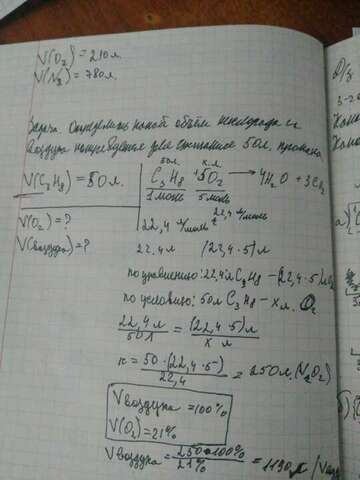 V(O₂) = 210 л.
V(N₂) = 780 л.
Задача Определить какой объём кислорода и
воздуха потребуется для сжигания 50 л. пропана
50 л. х л.
V(C₃H₈) = 50 л.
C₃H₈ + 5O₂ → 4H₂O + 3CO₂
1 моль 5 моль
V(O₂) = ?
22,4 л/моль 22,4 л/моль
V(воздуха) = ?
22,4 л (22,4 · 5) л
по уравнению: 22,4 л C₃H₈ – (22,4 · 5) л O₂
по условию: 50 л C₃H₈ – х л. O₂
22,4 л / 50 л = (22,4 · 5) л / х л
х = 50 · (22,4 · 5) / 22,4 = 250 л. (V O₂)
V воздуха = 100%
V(O₂) = 21%
V воздуха = 250 · 100% / 21% = 1190 л